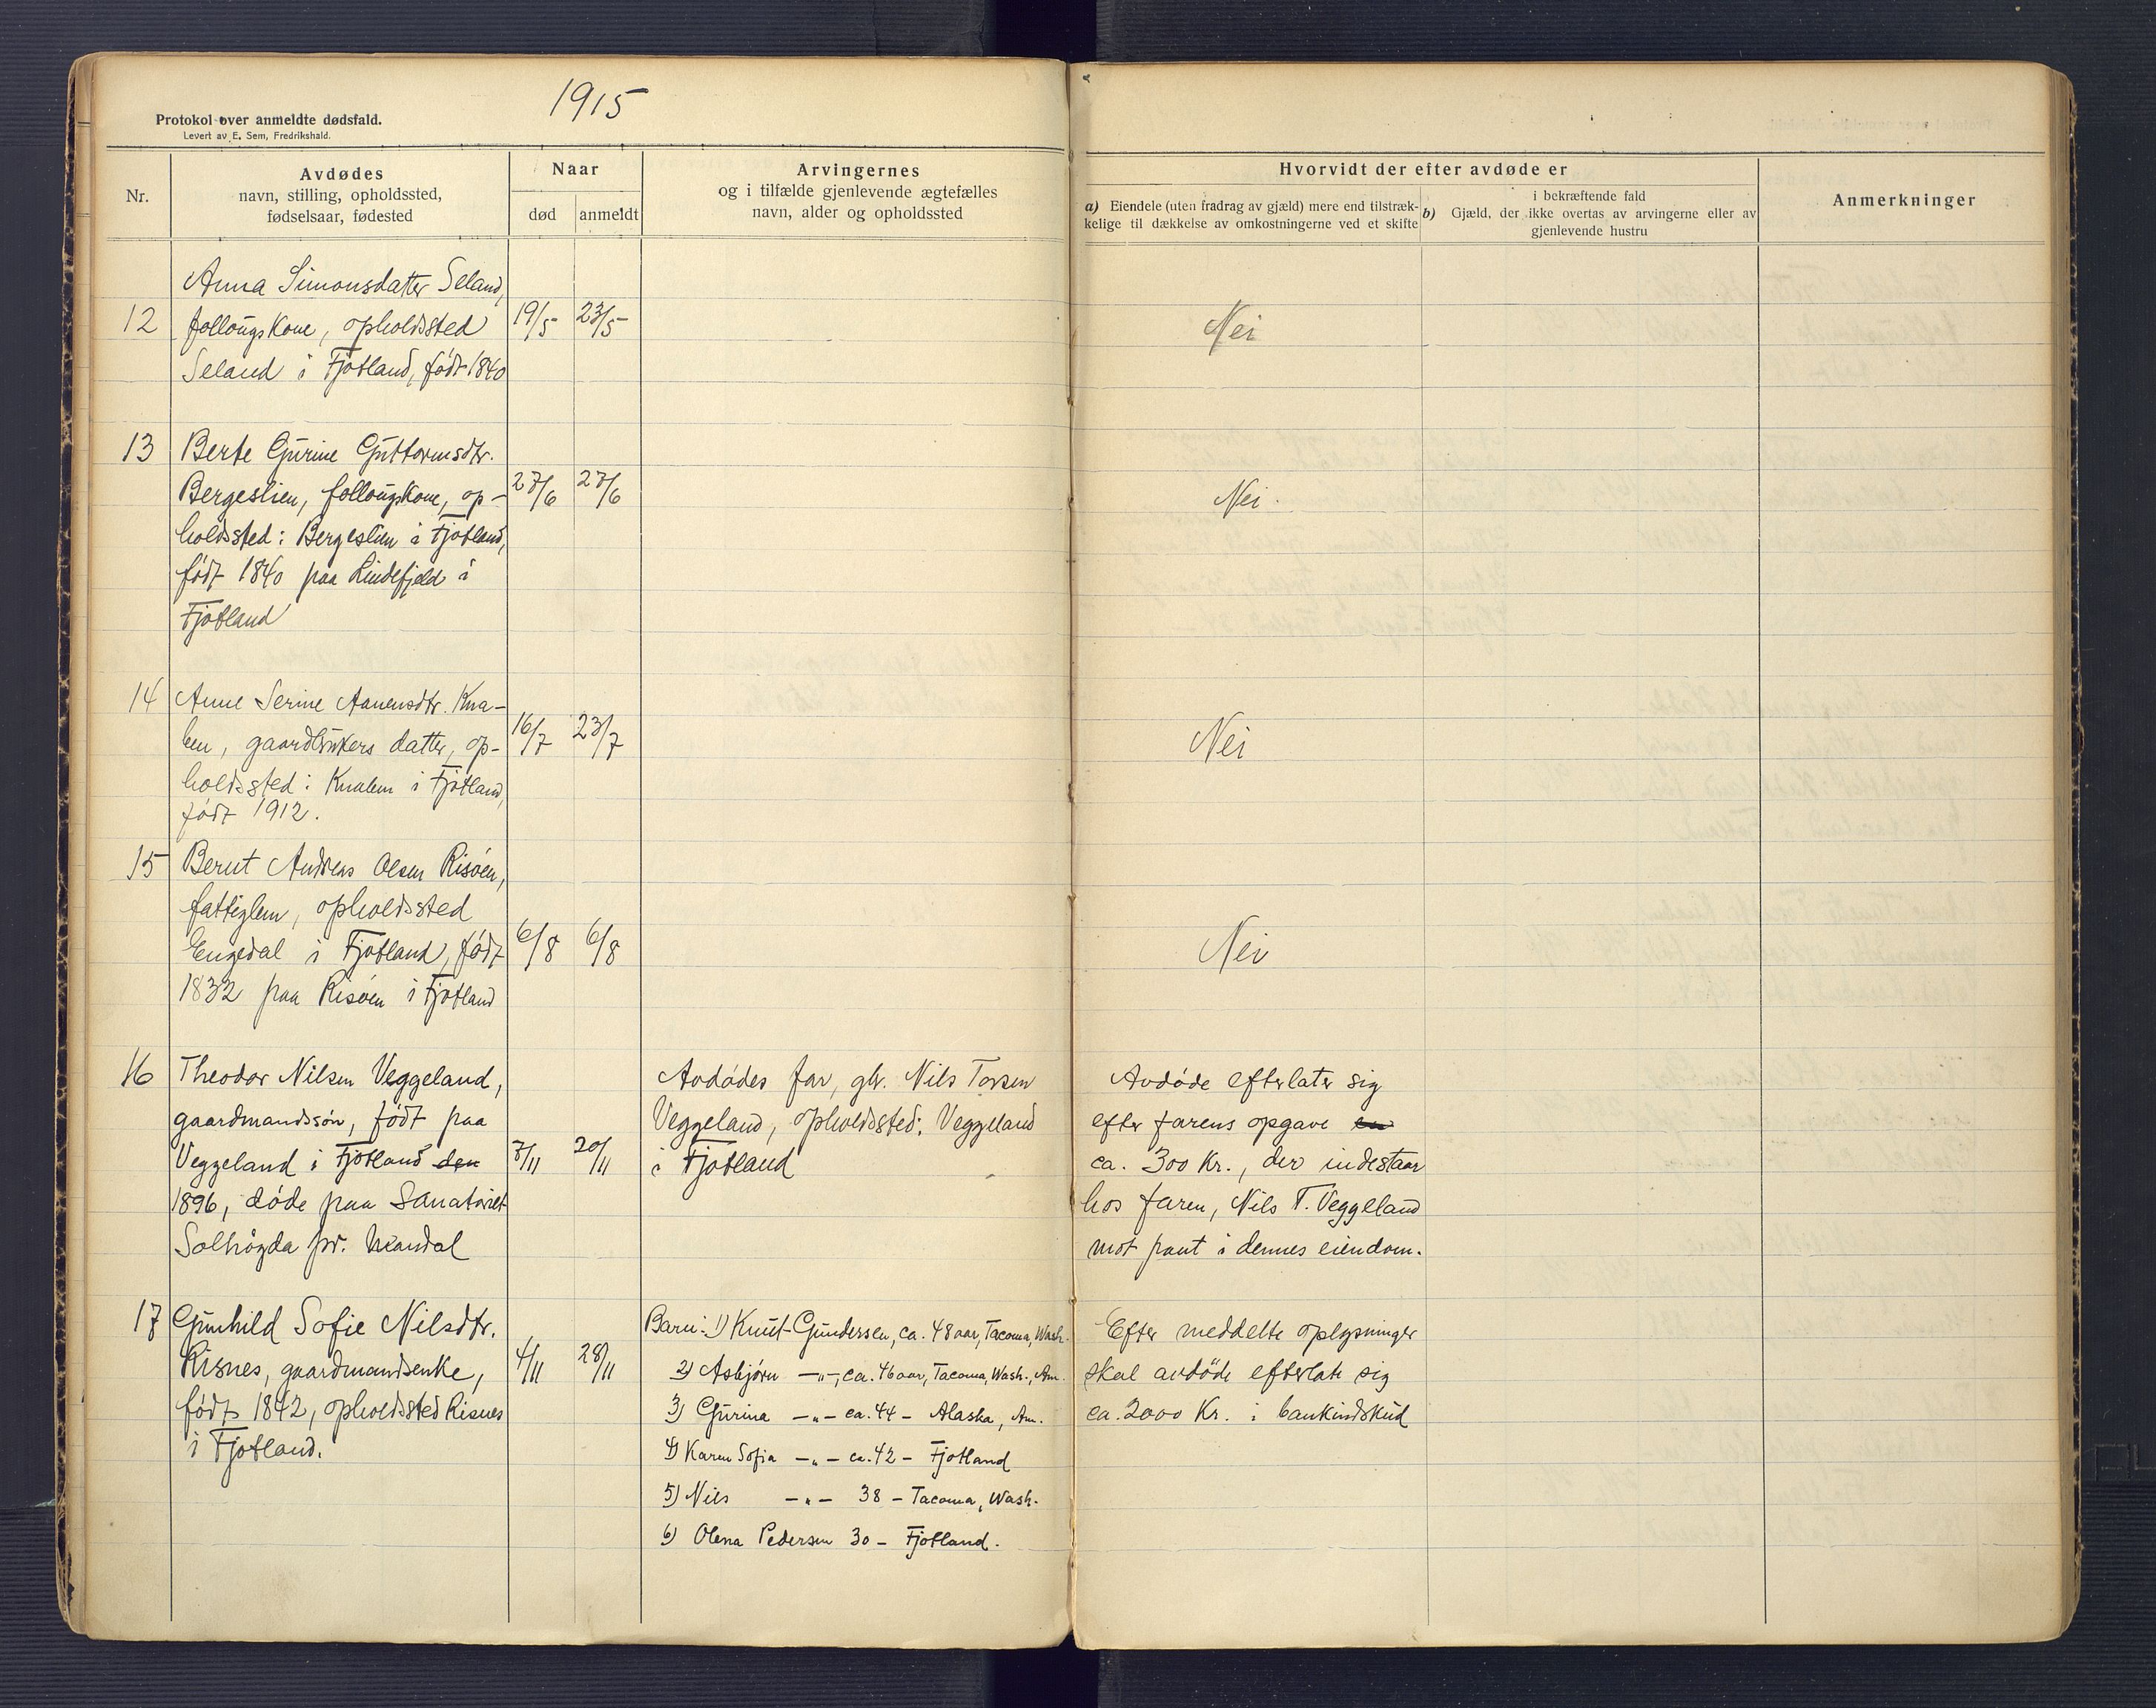 1915
Protokol over anmeldte dødsfald.
Levert av E. Sem, Fredrikshald.
Nr.
Avdødes
navn, stilling, opholdssted,
fødselsaar, fødested
Naar
død
anmeldt
Arvingernes
og i tilfælde gjenlevende ægtefælles
navn, alder og opholdssted
Hvorvidt der efter avdøde er
a) Eiendele (uten fradrag av gjæld) mere end tilstræk-
kelige til dækkelse av omkostningerne ved et skifte
i bekræftende fald
b) Gjæld, der ikke overtas av arvingerne eller av
gjenlevende hustru
Anmerkninger
Anna Simonsdatter Seland,
12 follougskone, opholdssted 19/5 23/5 Nei
Seland i Fjotland, født 1840
13 Berte Gurine Guttormsdtr.
Bergeslien, follougskone, op- 27/6 27/6 Nei.
holdssted: Bergeslien i Fjotland,
født 1840 paa Lindefjeld i
Fjotland
14 Anne Serine Aanensdtr. Kna-
ben, gaardbrukers datter, op- 16/7 23/7 Nei
holdssted: Knaben i Fjotland,
født 1912.
15 Bernt Andreas Olsen Risøen,
fattiglem, opholdssted
Engedal i Fjotland, født 6/8 6/8 Nei
1832 paa Risøen i Fjotland
16 Theodor Nilsen Veggeland, Avdødes far, gbr. Nils Torsen Avdøde efterlater sig
gaardmandssøn, født paa Veggeland, opholdssted: Veggeland efter farens opgave en
Veggeland i Fjotland den 7/11 20/11 i Fjotland ca. 300 Kr., der indestaar
1896, døde paa Sanatoriet hos faren, Nils T. Veggeland
Solhøgda pr. Mandal mot pant i dennes eiendom.
17 Gunhild Sofie Nilsdtr. Barn: 1) Knut Gundersen, ca. 48 aar, Tacoma, Wash. Efter meddelte oplysninger
Risnes, gaardmandsenke, 4/11 28/11 2) Asbjørn —"—, ca. 46 aar, Tacoma, Wash., Am. skal avdøde efterlate sig
født 1842, opholdssted Risnes 3) Gurina —"— ca. 44 — Alaska, Am. ca. 2000 Kr. i bankindskud
i Fjotland. 4) Karen Sofia —"— ca. 42 — Fjotland
5) Nils —"— 38 — Tacoma, Wash.
6) Olena Pedersen 30 — Fjotland.